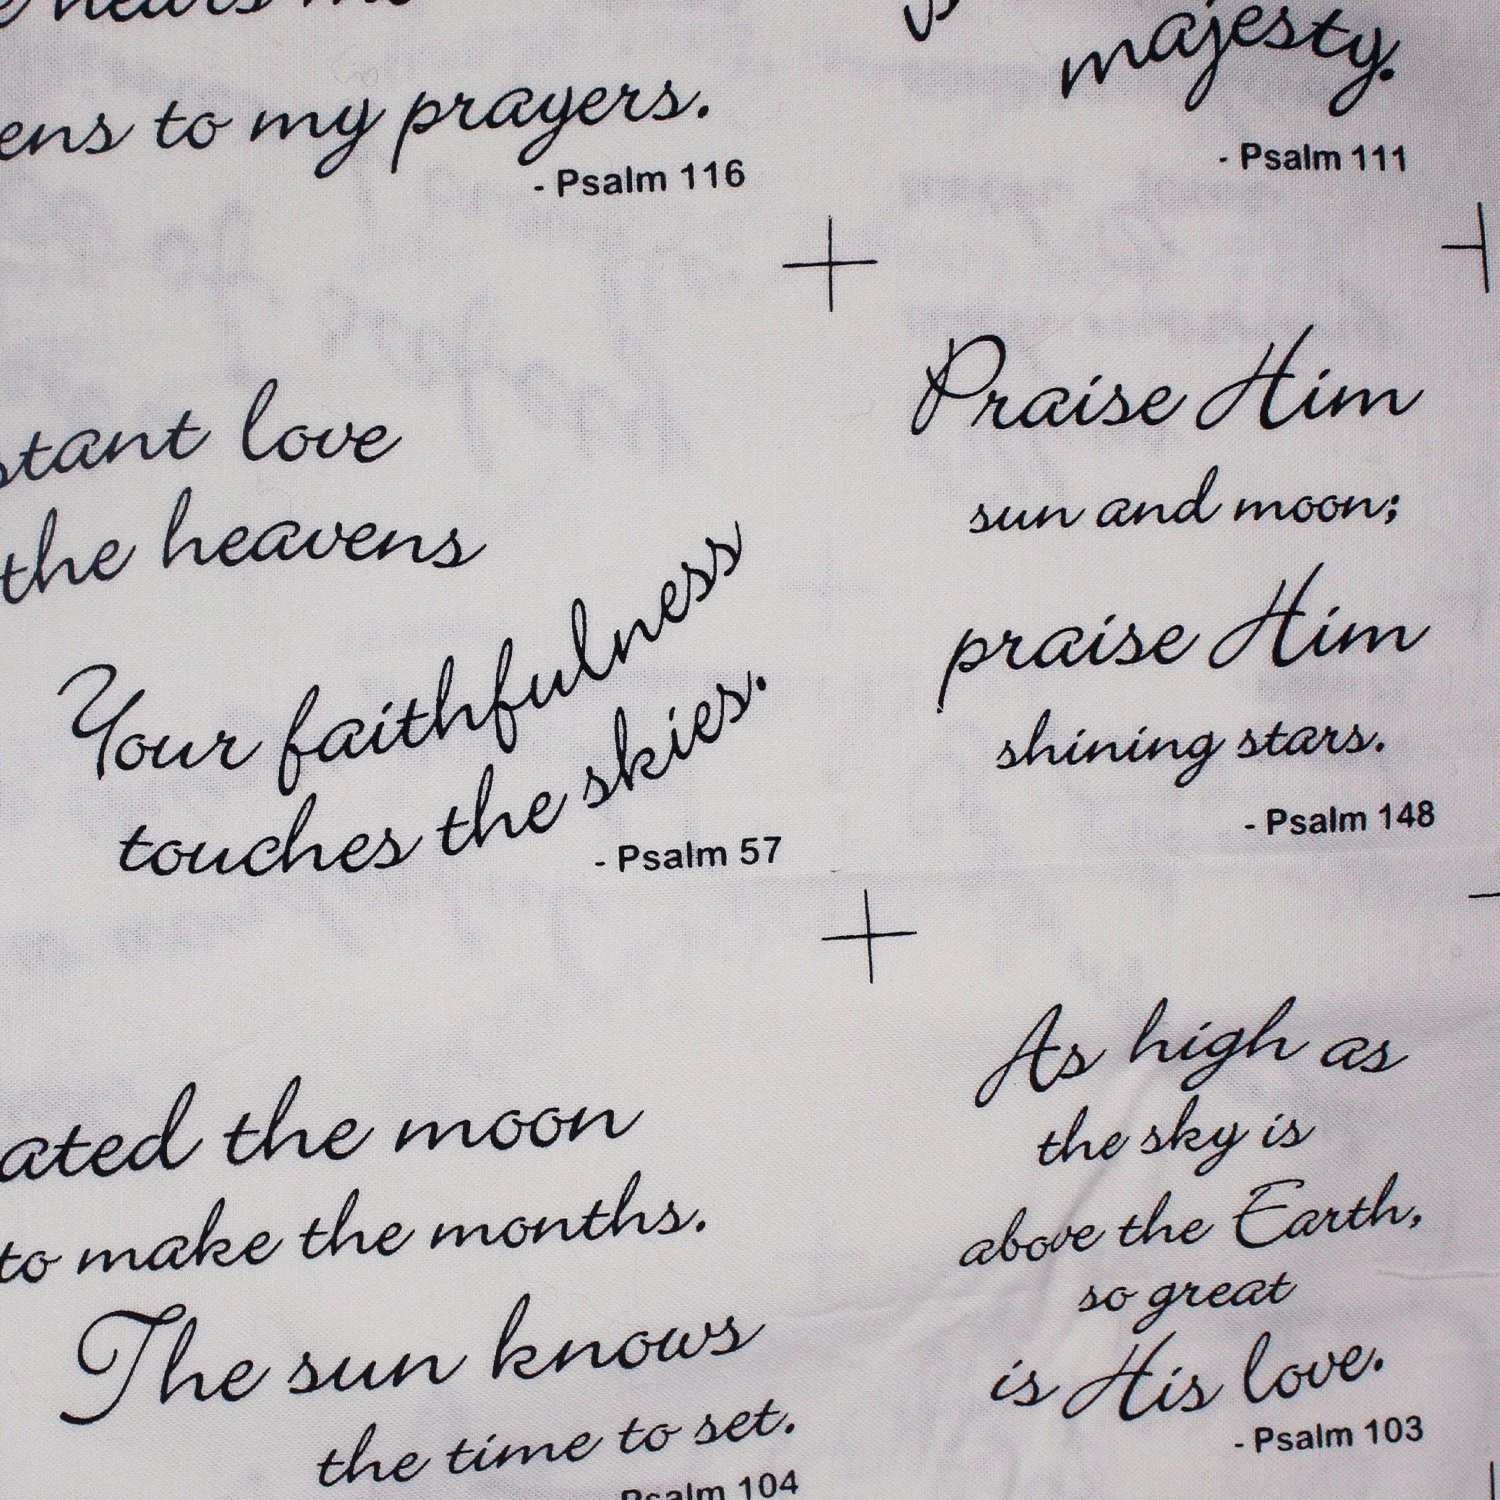 hears me
to my prayers.
- Psalm 116
majesty.
- Psalm 111
love
the heavens
Your faithfulness
touches the skies.
- Psalm 57
Praise Him
sun and moon;
praise Him
shining stars.
- Psalm 148
the moon
to make the months.
The sun knows
the time to set.
Psalm 104
As high as
the sky is
above the Earth,
so great
is His love.
- Psalm 103